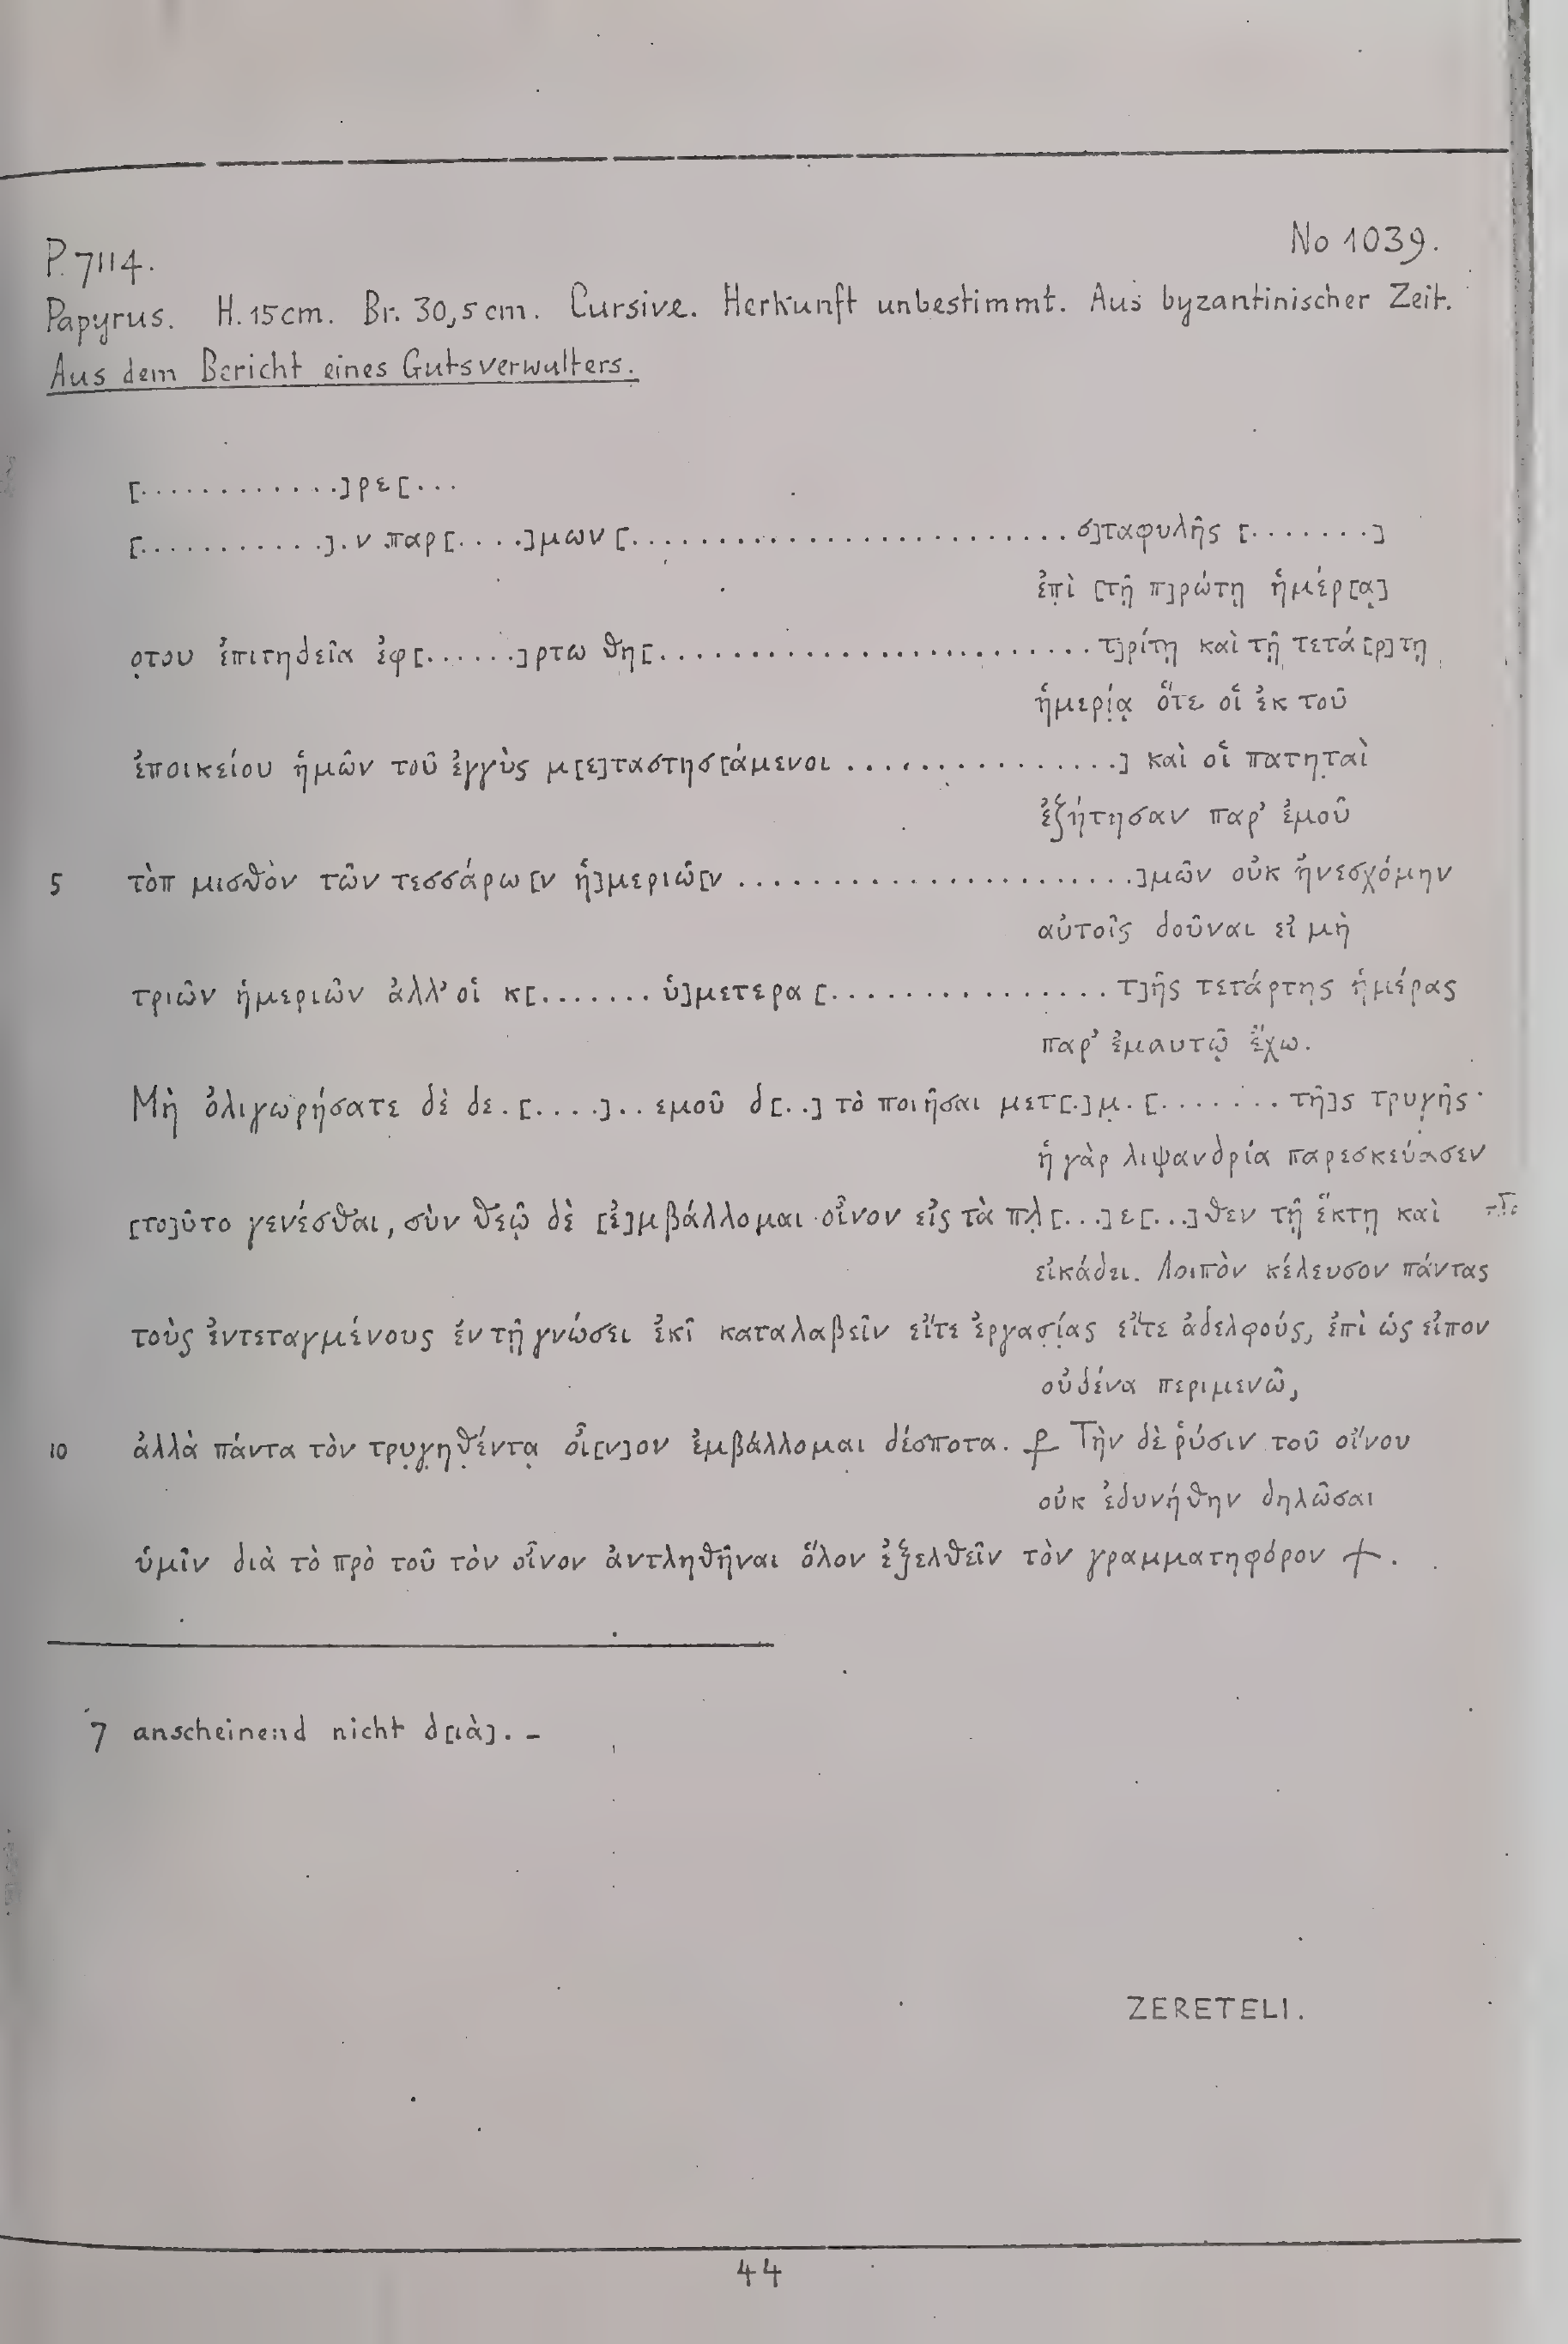 P. 7114.
No 1039.
Papyrus. H. 15 cm. Br. 30,5 cm. Cursive. Herkunft unbestimmt. Aus byzantinischer Zeit.
Aus dem Bericht eines Gutsverwalters.
[............]ρε[...
[...........].ν παρ[....]μων[........................σ]ταφυλῆς [.......]
ἐπὶ [τῇ π]ρώτῃ ἡμέρ[ᾳ]
οτου ἐπιτηδεῖα ἐφ[......]ρτω θη[........................τ]ρίτῃ καὶ τῇ τετά[ρ]τῃ
ἡμερίᾳ ὅτε οἱ ἐκ τοῦ
ἐποικείου ἡμῶν τοῦ ἐγγὺς μ[ε]ταστησ[άμενοι ...............] καὶ οἱ πατηταὶ
ἐξήτησαν παρ' ἐμοῦ
5 τὸπ μισθὸν τῶν τεσσάρω[ν ἡ]μεριῶ[ν ......................]μῶν οὐκ ἠνεσχόμην
αὐτοῖς δοῦναι εἰ μὴ
τριῶν ἡμεριῶν ἀλλ' οἱ κ[....... ὑ]μετερα [............... τ]ῆς τετάρτης ἡμέρας
παρ' ἐμαυτῷ ἔχω.
Μὴ ὀλιγωρήσατε δὲ δε.[....]..εμοῦ δ[..] τὸ ποιῆσαι μετ[.]μ.[....... τῆ]ς τρυγῆς·
ἡ γὰρ λιψανδρία παρεσκεύασεν
[το]ῦτο γενέσθαι, σὺν θεῷ δὲ [ἐ]μβάλλομαι οἶνον εἰς τὰ πλ[...]ε[...]θεν τῇ ἕκτῃ καὶ
εἰκάδει. Λοιπὸν κέλευσον πάντας
τοὺς ἐντεταγμένους ἐν τῇ γνώσει ἐκῖ καταλαβεῖν εἴτε ἐργασίας εἴτε ἀδελφούς, ἐπὶ ὡς εἶπον
οὐδένα περιμενῶ,
10 ἀλλὰ πάντα τὸν τρυγηθέντα οἶ[ν]ον ἐμβάλλομαι δέσποτα. ⳨ Τὴν δὲ ῥύσιν τοῦ οἴνου
οὐκ ἐδυνήθην δηλῶσαι
ὑμῖν διὰ τὸ πρὸ τοῦ τὸν οἶνον ἀντληθῆναι ὅλον ἐξελθεῖν τὸν γραμματηφόρον +.
7 anscheinend nicht δ[ιὰ]. –
ZERETELI.
44